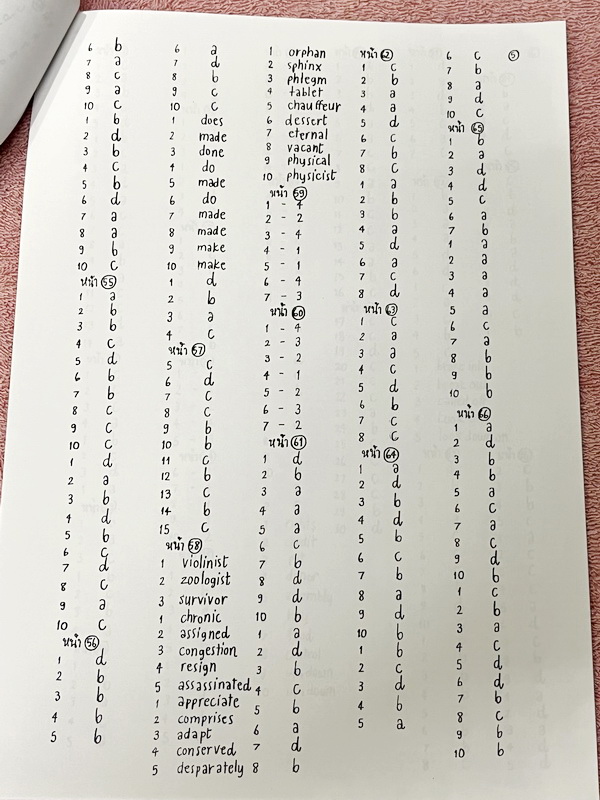 6 b
7 a
8 c
9 a
10 c
1 b
2 d
3 b
4 c
5 b
6 d
7 a
8 a
9 b
10 c
หน้า 55
1 a
2 b
3 b
4 c
5 d
6 b
7 b
8 c
9 c
10 c
1 d
2 a
3 b
4 d
5 b
6 c
7 d
8 c
9 a
10 c
หน้า 56
1 d
2 b
3 b
4 b
5 b
6 a
7 d
8 b
9 c
10 c
1 does
2 made
3 done
4 do
5 made
6 do
7 made
8 made
9 make
10 make
1 d
2 b
3 a
4 c
หน้า 57
5 c
6 d
7 c
8 c
9 b
10 b
11 c
12 b
13 c
14 b
15 c
หน้า 58
1 violinist
2 zoologist
3 survivor
1 chronic
2 assigned
3 congestion
4 resign
5 assassinated
1 appreciate
2 comprises
3 adapt
4 conserved
5 desparately
1 orphan
2 sphinx
3 phlegm
4 tablet
5 chauffeur
6 dessert
7 eternal
8 vacant
9 physical
10 physicist
หน้า 59
1 - 4
2 - 2
3 - 4
4 - 1
5 - 1
6 - 4
7 - 3
หน้า 60
1 - 4
2 - 3
3 - 2
4 - 1
5 - 2
6 - 3
7 - 2
หน้า 61
1 d
2 b
3 a
4 a
5 a
6 c
7 b
8 d
9 d
10 b
1 a
2 d
3 b
4 c
5 b
6 a
7 d
8 b
หน้า 62
1 c
2 b
3 a
4 a
5 d
6 c
7 b
8 c
1 a
2 b
3 b
4 a
5 d
6 a
7 c
8 d
หน้า 63
1 c
2 a
3 a
4 c
5 d
6 b
7 c
8 c
หน้า 64
1 a
2 d
3 b
4 d
5 b
6 c
7 b
8 a
9 d
10 b
1 b
2 c
3 d
4 b
5 a
5
6 c
7 b
8 a
9 d
10 c
หน้า 65
1 b
2 a
3 d
4 d
5 c
6 a
7 b
1 a
2 a
3 a
4 a
5 a
6 c
7 a
8 b
9 b
10 b
หน้า 66
1 a
2 d
3 b
4 b
5 a
6 c
7 a
8 c
9 d
10 b
1 c
2 b
3 a
4 c
5 d
6 d
7 b
8 c
9 b
10 b